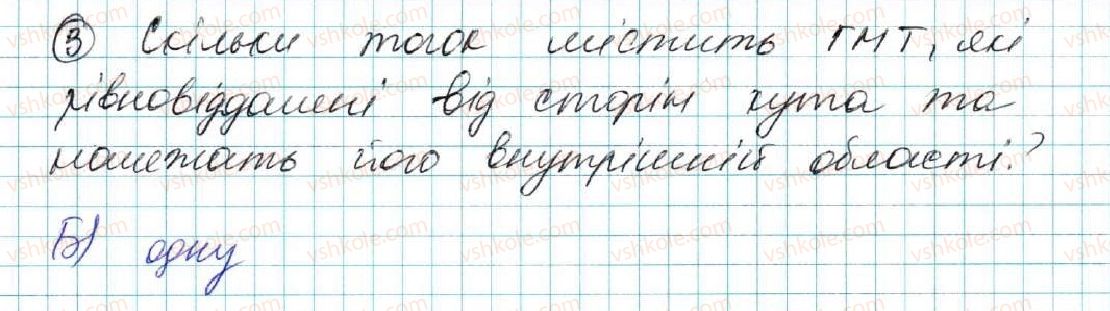 ③ Скільки точок містить ГМТ, які
рівновіддалені від сторін кута та
належать його внутрішній області?
Б) одну